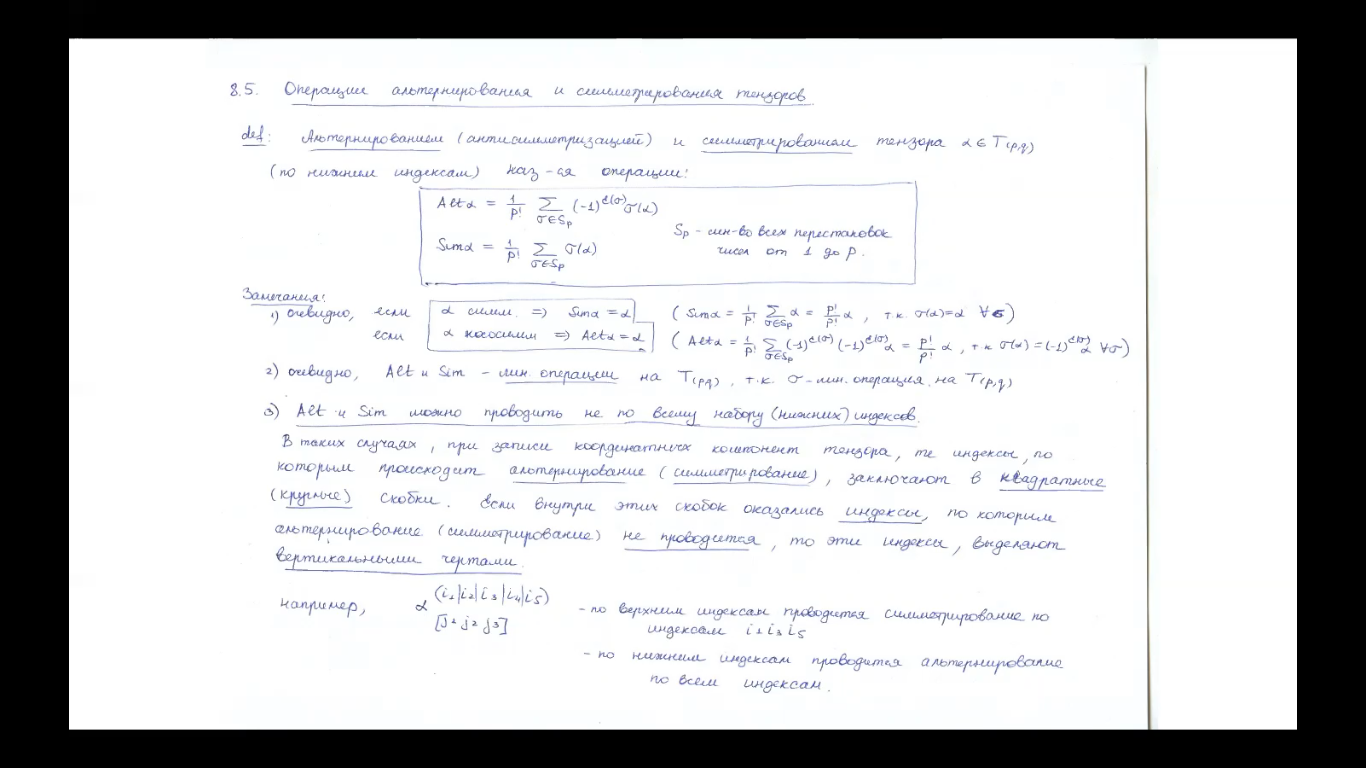 8.5. Операции альтернирования и симметрирования тензоров
def: Альтернированием (антисимметризацией) и симметрированием тензора α ∈ T(p,q)
(по нижним индексам) наз-ся операции:
Altα = 1/p! ∑_{σ∈Sp} (-1)^{ε(σ)} σ(α)
Sp - мн-во всех перестановок
чисел от 1 до p.
Simα = 1/p! ∑_{σ∈Sp} σ(α)
Замечания:
1) очевидно, если α симм. => Simα = α (Simα = 1/p! ∑_{σ∈Sp} α = p!/p! α, т.к. σ(α)=α ∀σ)
если α кососимм => Altα = α (Altα = 1/p! ∑_{σ∈Sp} (-1)^{ε(σ)} (-1)^{ε(σ)} α = p!/p! α, т.к σ(α) = (-1)^{ε(σ)} α ∀σ)
2) очевидно, Alt и Sim - лин. операции на T(p,q), т.к. σ - лин. операция на T(p,q)
3) Alt и Sim можно проводить не по всему набору (нижних) индексов.
В таких случаях, при записи координатных компонент тензора, те индексы, по
которым происходит альтернирование (симметрирование), заключают в квадратные
(круглые) скобки. Если внутри этих скобок оказались индексы, по которым
альтернирование (симметрирование) не проводится, то эти индексы, выделяют
вертикальными чертами.
например, α^{(i1|i2|i3|i4|i5)}_{[j1 j2 j3]} - по верхним индексам проводится симметрирование по
индексам i1 i3 i5
- по нижним индексам проводится альтернирование
по всем индексам.